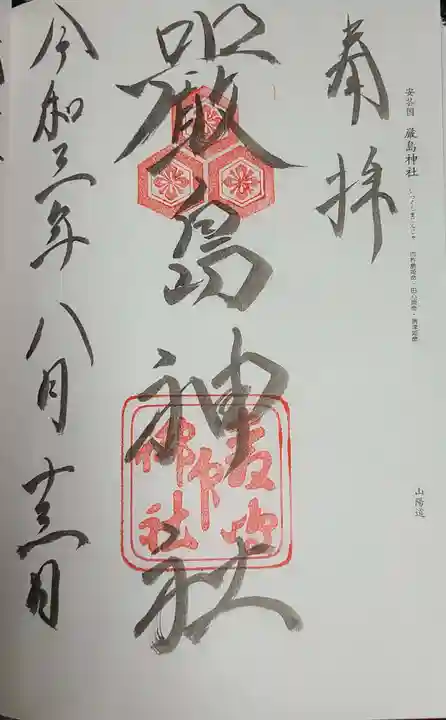 安芸国 厳島神社
いつくしまじんじゃ
山陽道
奉拝
嚴島神社
令和三年八月十三日